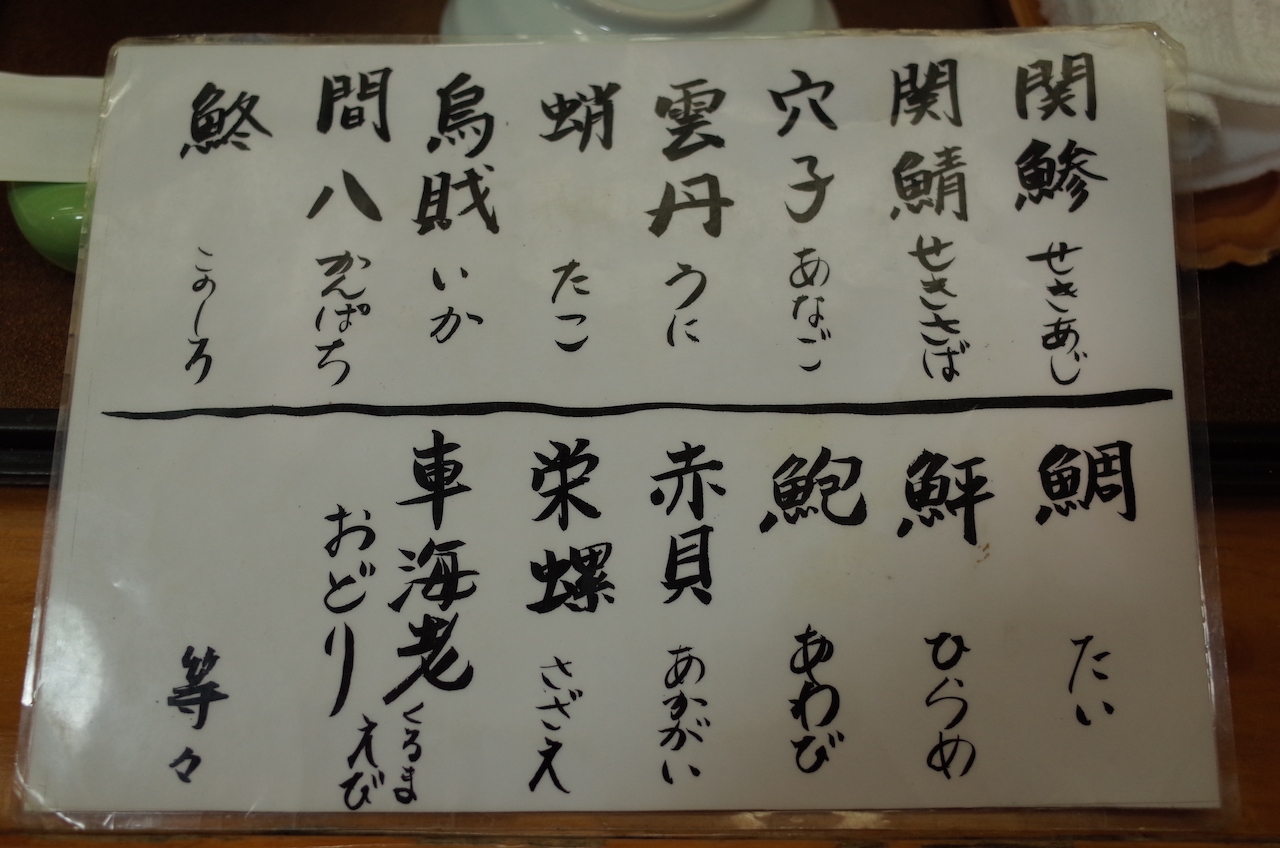 関鯵 せきあじ
関鯖 せきさば
穴子 あなご
雲丹 うに
蛸 たこ
烏賊 いか
間八 かんぱち
鮗 このしろ
鯛 たい
鮃 ひらめ
鮑 あわび
赤貝 あかがい
栄螺 さざえ
車海老 くるまえび
おどり
等々